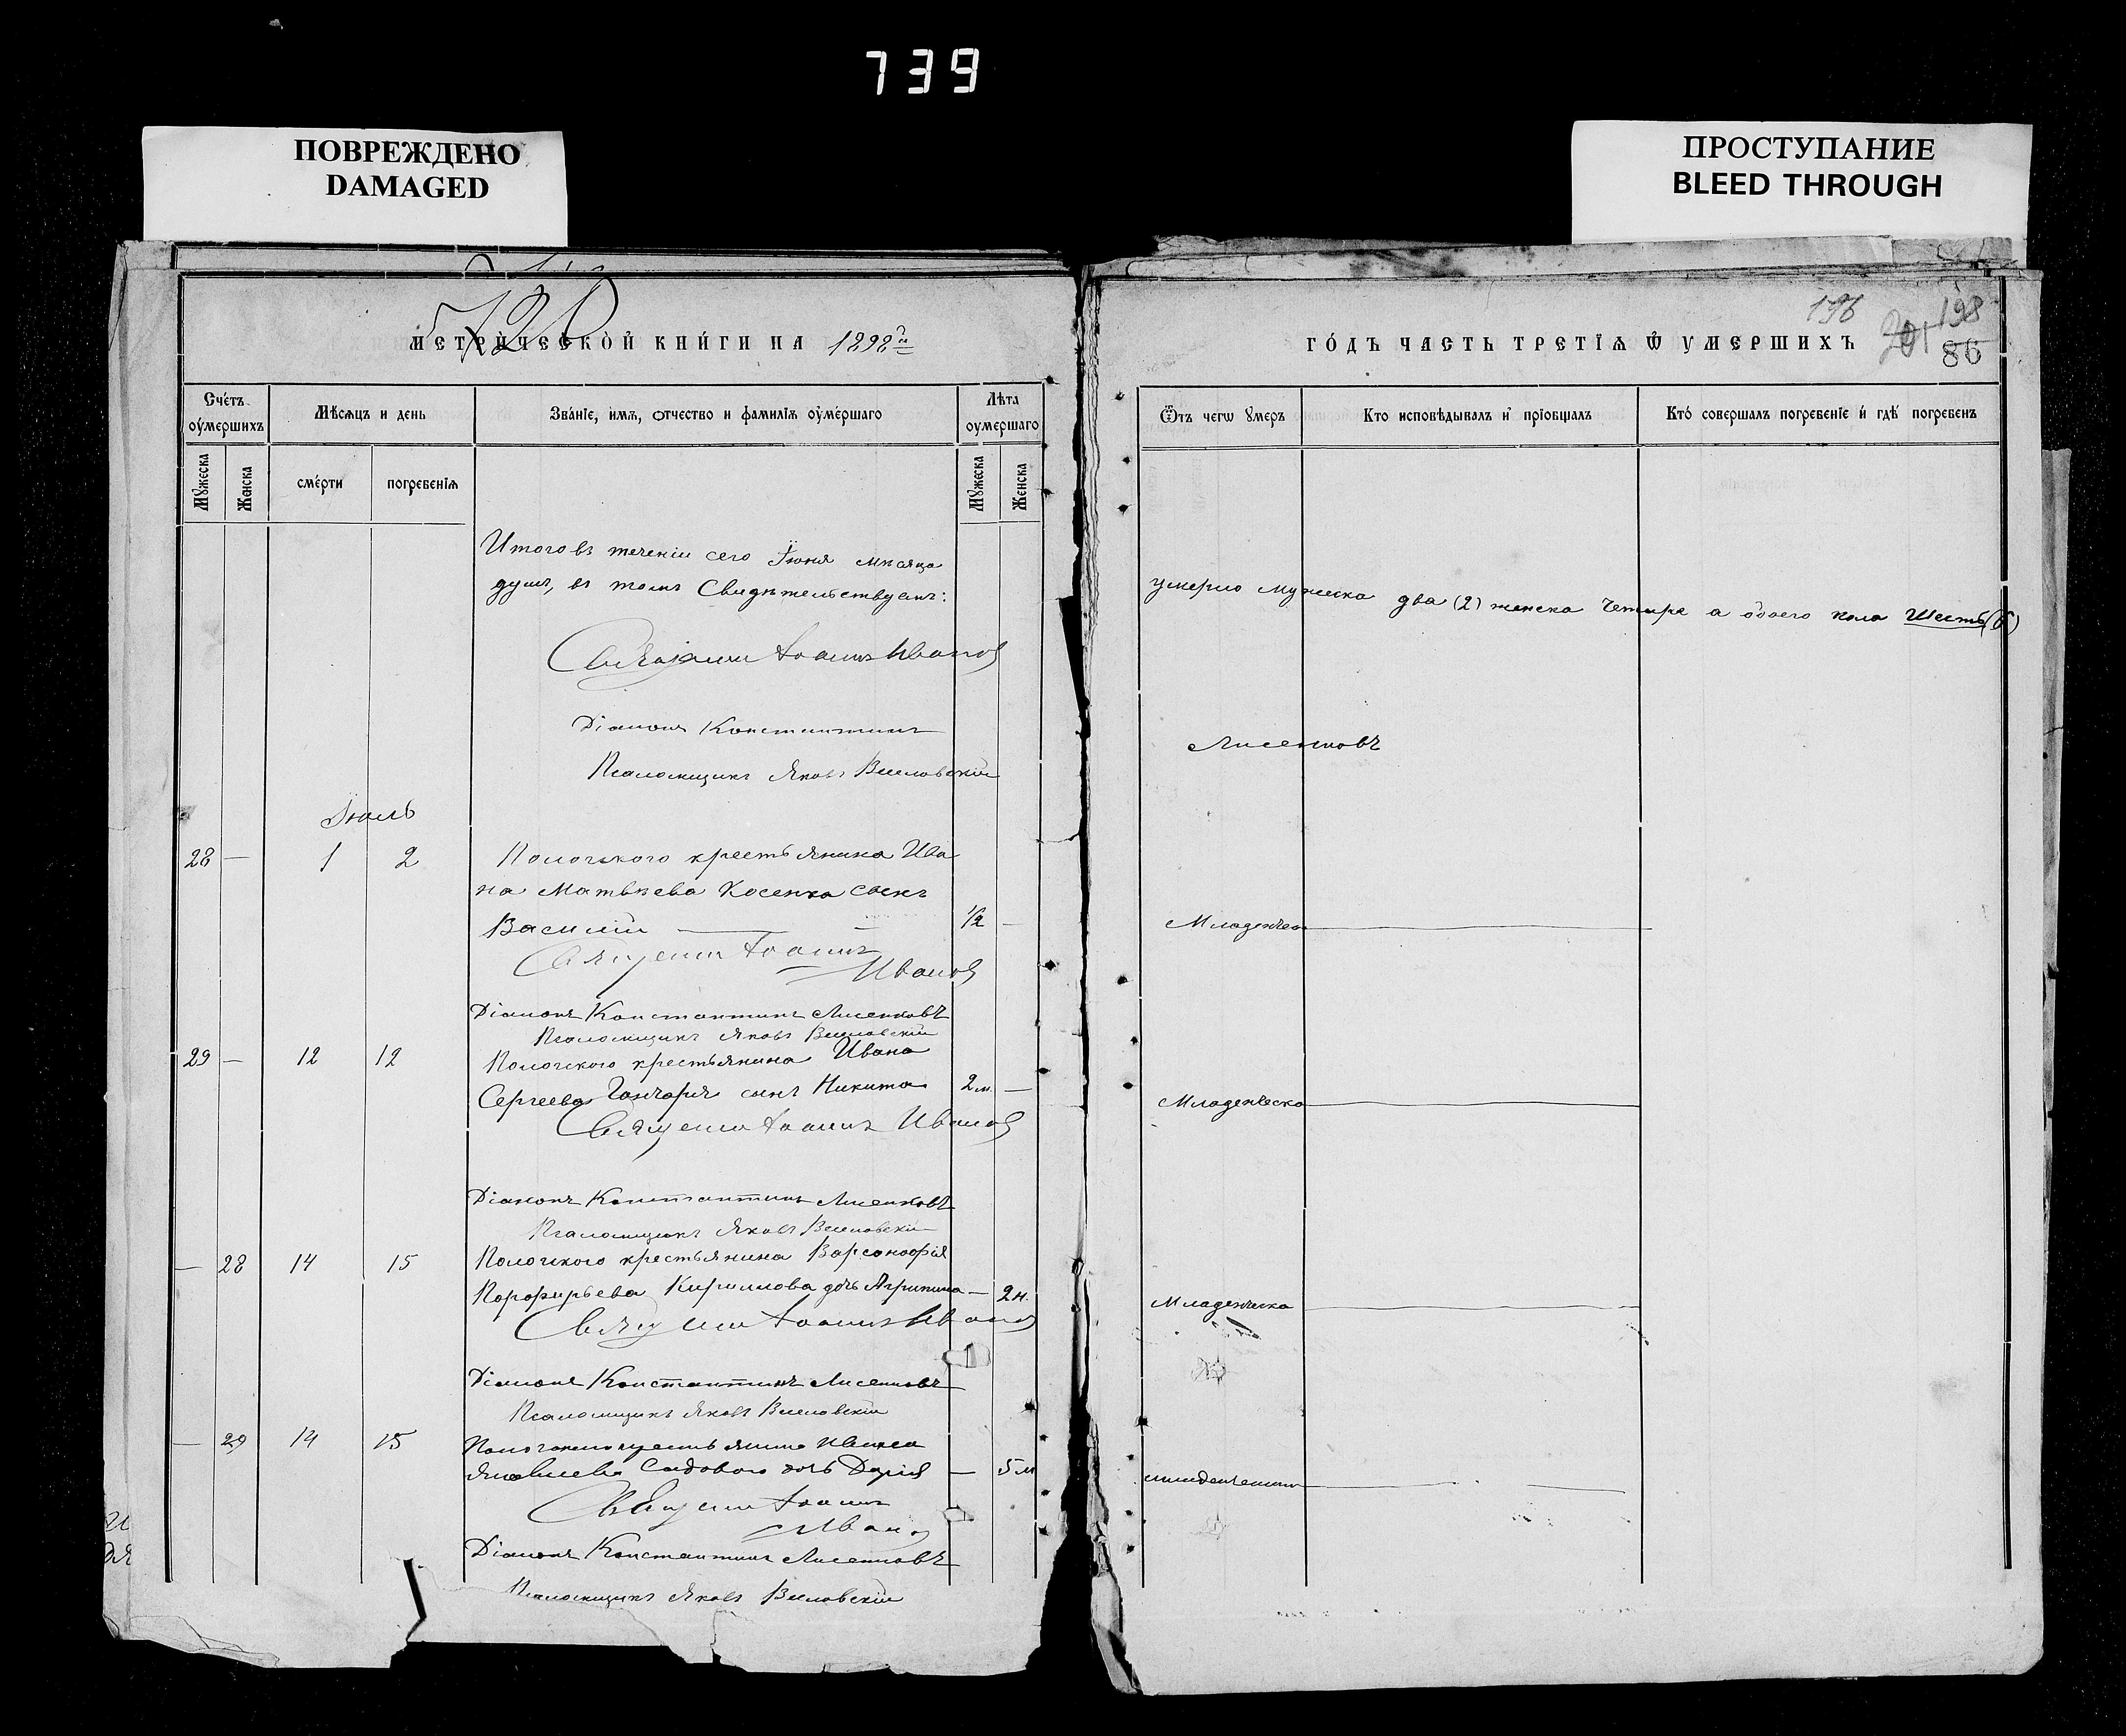 739
ПОВРЕЖДЕНО
DAMAGED
ПРОСТУПАНИЕ
BLEED THROUGH
МЕТРИЧЕСКОЙ КНИГИ НА 1898й
Счетъ оумершихъ
Мѣсяцъ и день
Званіе, имя, отчество и фамилія оумершаго
Лѣта оумершаго
Мужеска
Женска
смерти
погребенія
Мужеска
Женска
Итого въ теченіи сего Іюня мѣсяца
душъ, въ томъ Свидѣтельствуемъ:
Священникъ Іоаннъ Ивановъ
Діаконъ Константинъ
Псаломщикъ Яковъ
Іюль
28 — 1 2 Пологскаго крестьянина Ива
на Матвѣева Косенка сынъ
Василій — 1/2 —
Священникъ Іоаннъ
Ивановъ
Діаконъ Константинъ Лисенковъ
Псаломщикъ Яковъ
29 — 12 12 Пологскаго крестьянина Ивана
Сергеева Гончаръ сынъ Никита 2 м. —
Священникъ Іоаннъ Ивановъ
Діаконъ Константинъ Лисенковъ
Псаломщикъ Яковъ
— 28 14 15 Пологскаго крестьянина Варсонофія
Порфирьева Кирилова дочь Агрипина — 2 н.
Священникъ Іоаннъ Ивановъ
Діаконъ Константинъ Лисенковъ
Псаломщикъ Яковъ
— 29 14 15 Пологскаго крестьянина Ивана
Яковлева Садового дочь Дарія — 5 м
Священникъ Іоаннъ
Ивановъ
Діаконъ Константинъ Лисенковъ
Псаломщикъ Яковъ
196
201
198
86
ГОДЪ ЧАСТЬ ТРЕТІЯ Ѿ УМЕРШИХЪ
Ѿтъ чегѡ умеръ
Кто исповѣдывалъ и пріобщалъ
Кто совершалъ погребеніе и гдѣ погребенъ
умерло мужеска два (2) женска четыре а обоего пола Шесть (6)
Лисенковъ
Младенческ
Младенческа
Младенческа
младенческ